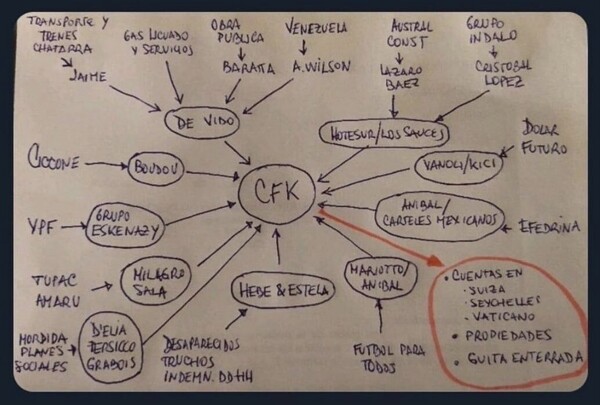 TRANSPORTE Y
TRENES
CHATARRA
JAIME
GAS LICUADO
Y SERVICIOS
OBRA
PUBLICA
BARATTA
VENEZUELA
A. WILSON
AUSTRAL
CONST
LAZARO
BAEZ
GRUPO
INDALO
CRISTOBAL
LOPEZ
DE VIDO
HOTESUR/LOS SAUCES
CICCONE
BOUDOU
CFK
VANOLI/KICI
DOLAR
FUTURO
YPF
GRUPO
ESKENAZY
ANIBAL/
CARTELES MEXICANOS
EFEDRINA
TUPAC
AMARU
MILAGRO
SALA
HEBE & ESTELA
MARIOTTO/
ANIBAL
MORDIDA
PLANES
SOCIALES
D'ELIA
PERSICO
GRABOIS
DESAPARECIDOS
TRUCHOS
INDEMN. DDHH
FUTBOL PARA
TODOS
• CUENTAS EN
· SUIZA
· SEYCHELLES
- VATICANO
• PROPIEDADES
• GUITA ENTERRADA